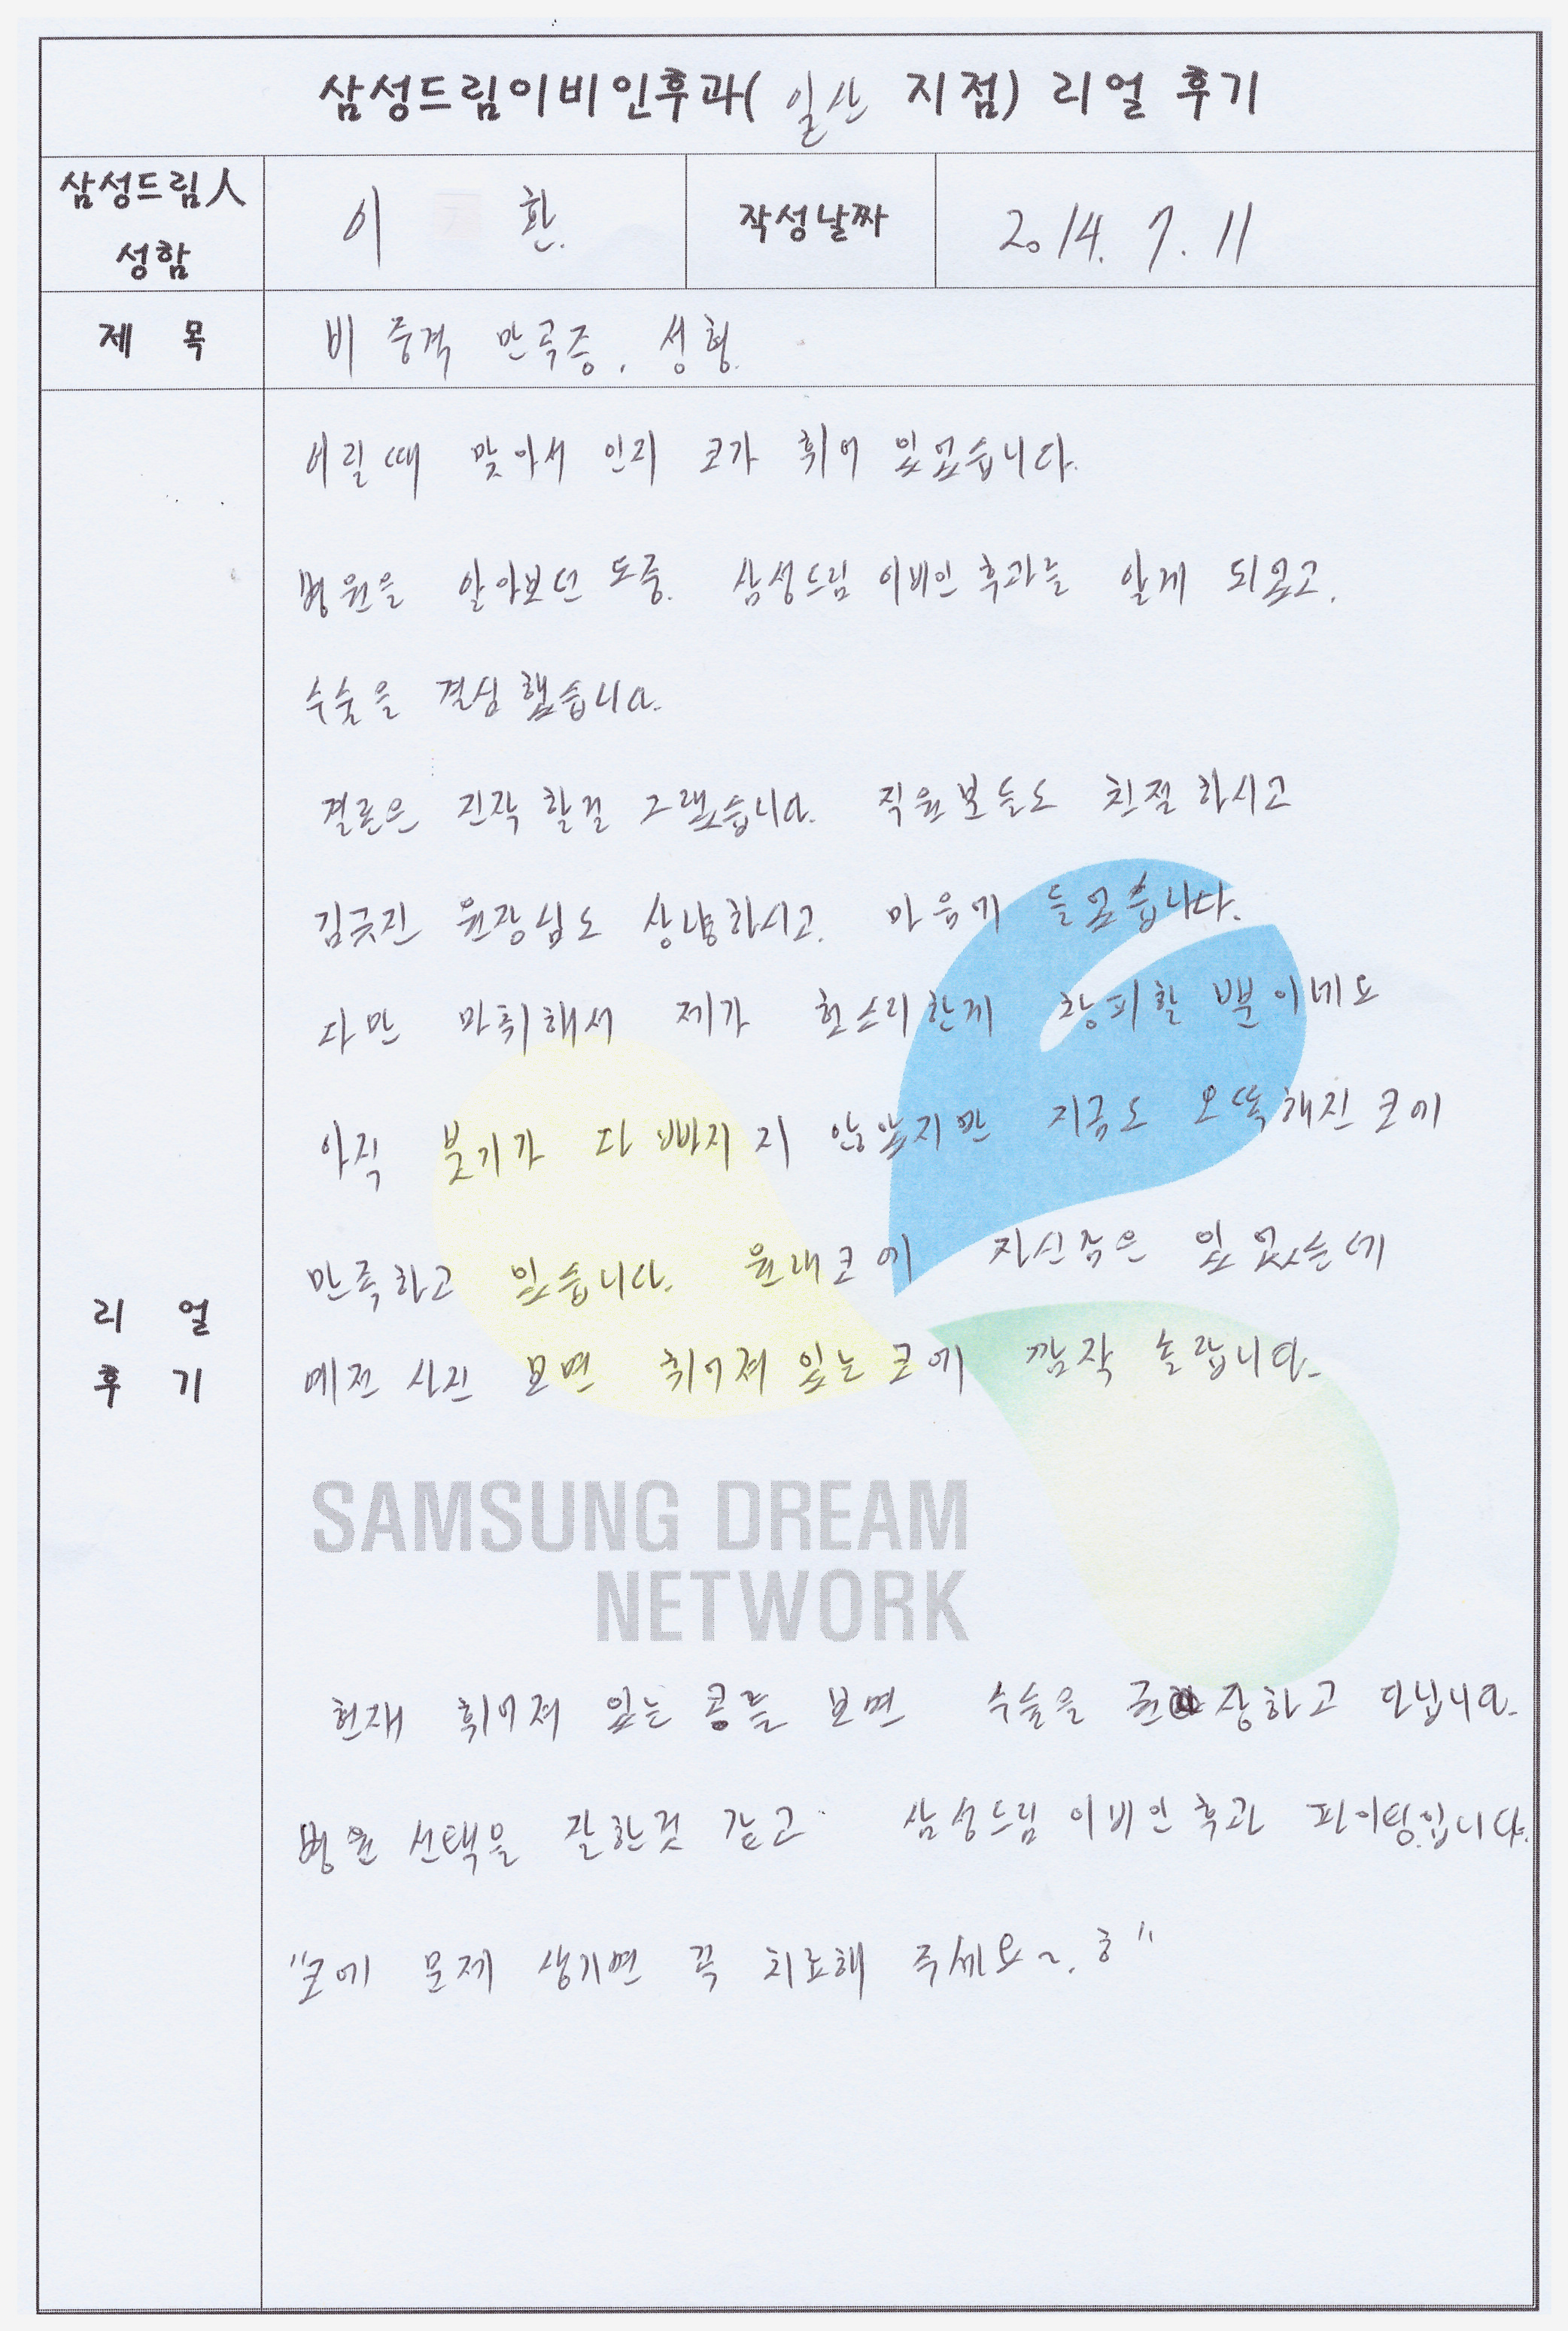 삼성드림이비인후과( 일산 지점) 리얼 후기
삼성드림人
성함
이 환.
작성날짜
2014. 7. 11
제 목
비중격 만곡증, 성형.
어릴때 맞아서 인지 코가 휘어 있었습니다.
병원을 알아보던 도중. 삼성드림 이비인후과를 알게 되었고,
수술을 결심했습니다.
결론은 진작 할걸 그랬습니다. 직원분들도 친절하시고
원장님도 상냥하시고. 마음에 들었습니다.
다만 마취해서 제가 헛소리한게 창피할 뿐이네요
아직 붓기가 다 빠지지 않았지만 지금도 오똑해진 코에
만족하고 있습니다. 원래 코에 자신감은 있었는데
예전 사진 보면 휘어져 있는 코에 깜짝 놀랍니다.
SAMSUNG DREAM
NETWORK
리 얼
후 기
현재 휘어져 있는 콩를 보면 수술을 권장하고 다닙니다.
병원 선택을 잘한것 같고 삼성드림 이비인후과 파이팅입니다.
"코에 문제 생기면 꼭 치료해 주세요~. ㅎ"